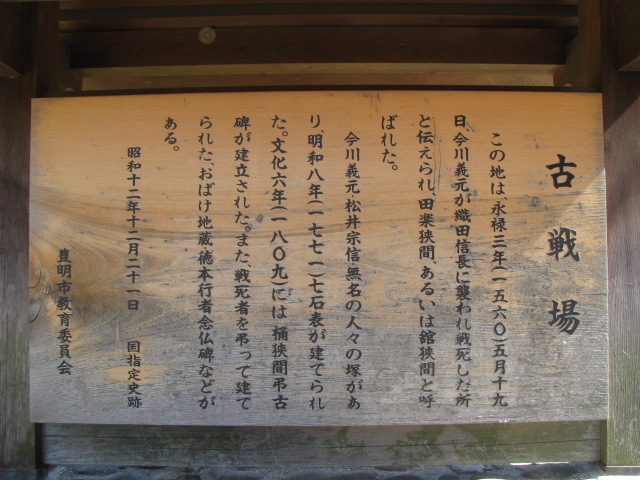 古戦場
この地は、永禄三年(一五六〇)五月十九
日、今川義元が織田信長に襲われ戦死した所
と伝えられ、田楽狭間、あるいは舘狭間と呼
ばれた。
今川義元・松井宗信・無名の人々の塚があ
り、明和八年(一七七一)七石表が建てられ
た。文化六年(一八〇九)には、桶狭間弔古
碑が建立された。また、戦死者を弔って建て
られた、おばけ地蔵・徳本行者念仏碑などが
ある。
昭和十二年十二月二十一日 国指定史跡
豊明市教育委員会